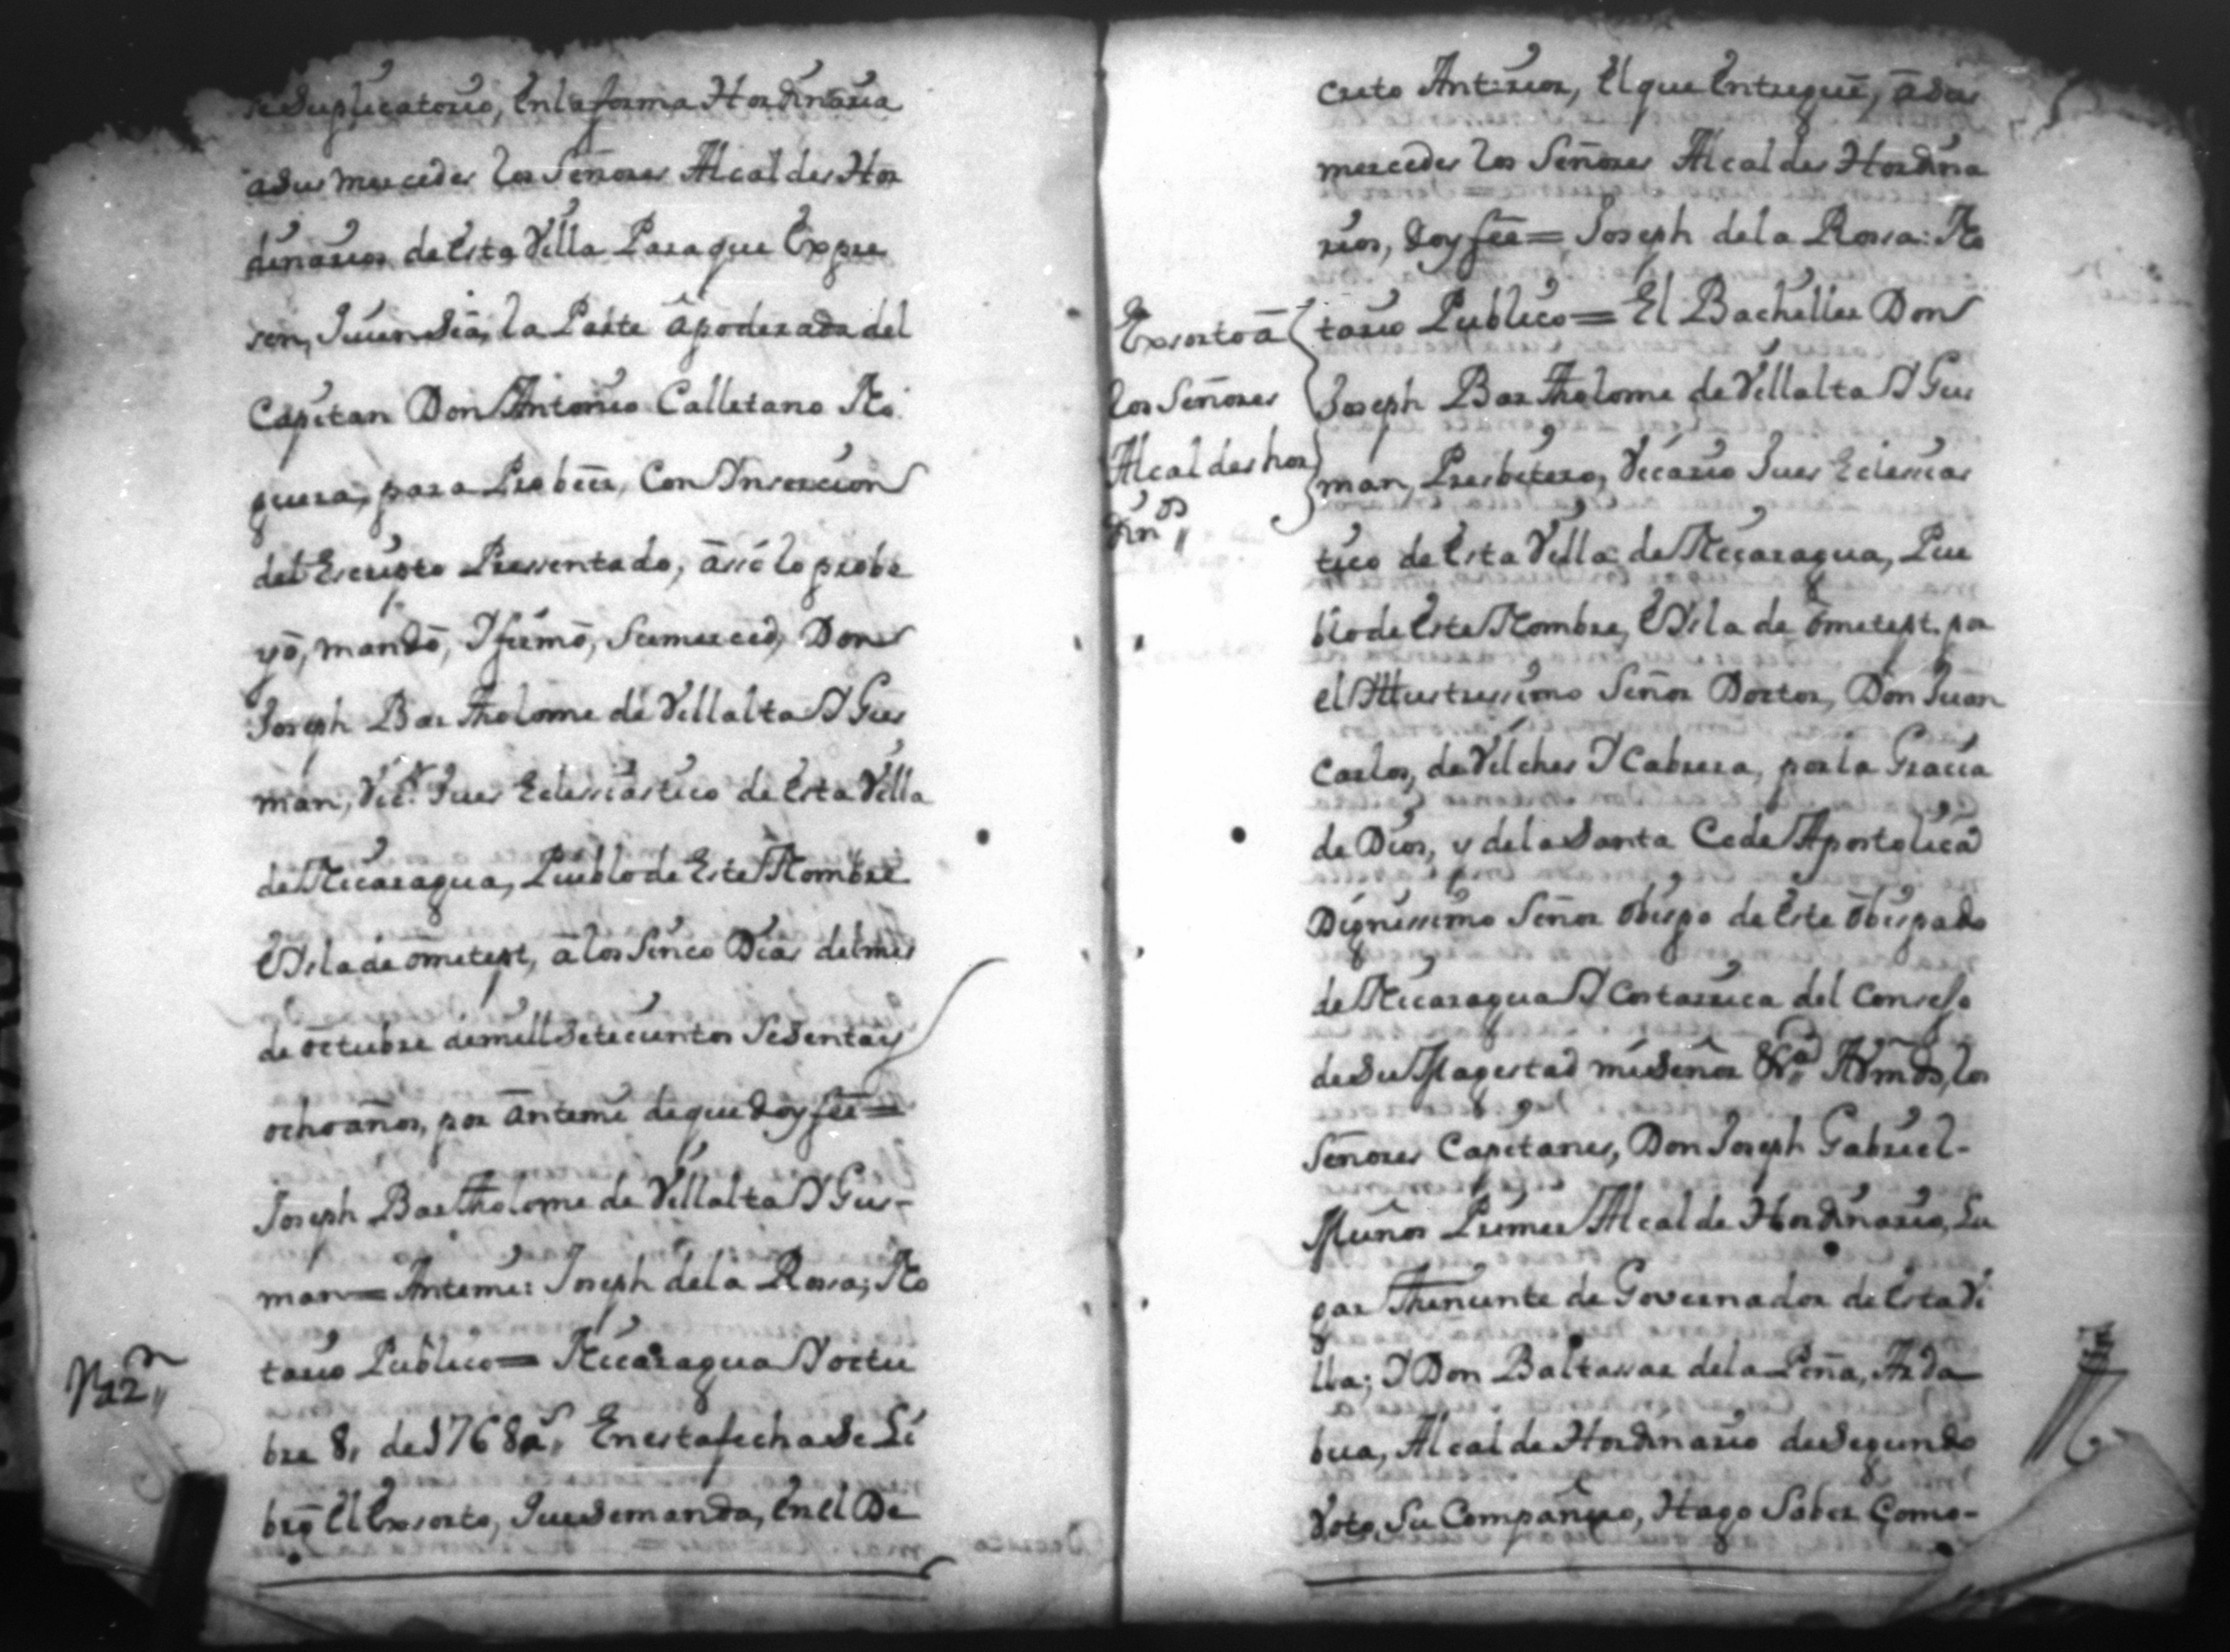 se Suplicatorio, En la forma Hordinaria
a sus mercedes los Señores Alcaldes Hor
dinarios de Esta Villa Para que Expre
sen, Quien Sea, la Parte apoderada del
Capitan Don Antonio Calletano No
guera, para Probeer, Con Insercion
del Escripto Pressentado, assi lo probe
yó, mandó, Y firmó, Su merced, Don
Joseph Bartholome de Villalta Y Gus
man, Vic.º Jues Eclessiastico de Esta Villa
de Nicaragua, Pueblo de Este Nombre
E Ysla de ometept, a los Sinco Dias del mes
de octubre de mill Setecientos Sesenta y
ocho años, por Antemi de que doy feé =
Joseph Bartholome de Villalta Y Gus-
man = Antemi: Joseph de la Rossa; No
tario Publico = Nicaragua Y octu
bre 8, de 1768 a.s En esta fecha Se Li
bró El Exsorto, Que Se manda, En el De
creto Anterior, El que Entregué, a sus
mercedes los Señores Alcaldes Hordina
rios, Doy feé = Joseph de la Rossa: No
Exsorto a
los Señores
Alcaldes hor
din.os
tario Publico = El Bachiller Don
Joseph Bartholome de Villalta Y Gus
man, Presbitero, Vicario Jues Eclesias
tico de Esta Villa de Nicaragua, Pue
blo de Este Nombre, E Ysla de ometept. por
el Illustrissimo Señor Doctor, Don Juan
Carlos, de Vilches Y Cabrera, por la Gracia
de Dios, y de la Santa Cede Apostolica
Dignissimo Señor Obispo de Este Obispado
de Nicaragua Y Costarrica del Consejo
de Su Magestad mi Señor los
Señores Capitanes, Don Joseph Gabriel-
Muños Primer Alcalde Hordinario, Lu
gar Theniente de Governador de Esta Vi
lla; Y Don Baltassar de la Peña, Arda
bua, Alcalde Hordinario de Segundo
Voto, Su Compañero, Hago Saber Como-